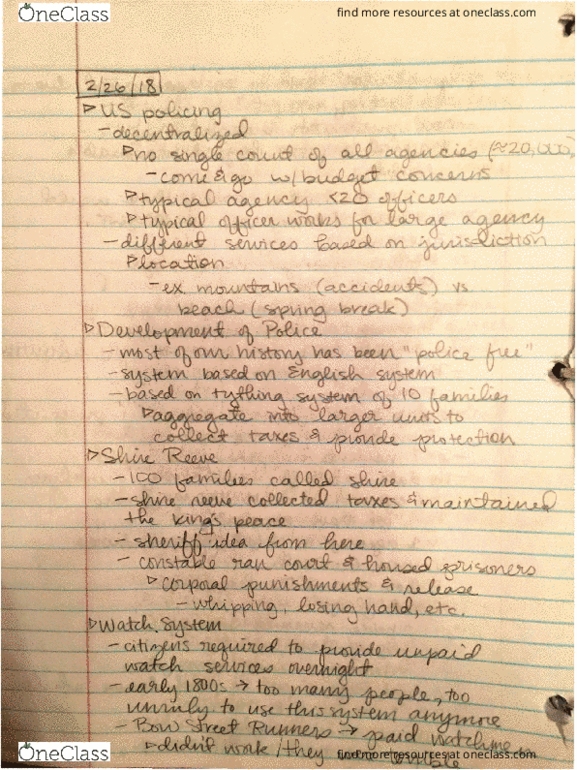 OneClass
find more resources at oneclass.com
2/26/18
▷ US policing
- decentralized
▷ no single count of all agencies (≈20,000)
- come & go w/ budget concerns
▷ typical agency <20 officers
▷ typical officer works for large agency
- different services based on jurisdiction
▷ location
- ex. mountains (accidents) vs
beach (spring break)
▷ Development of Police
- most of our history has been "police free"
- system based on English system
- based on tything system of 10 families
▷ aggregate into larger units to
collect taxes & provide protection
▷ Shire Reeve
- 100 families called shire
- shire reeve collected taxes & maintained
the king's peace
- sheriff idea from here
- constable ran court & housed prisoners
▷ corporal punishments & release
- whipping, losing hand, etc.
▷ Watch System
- citizens required to provide unpaid
watch services overnight
- early 1800s → too many people, too
unruly to use this system anymore
- Bow Street Runners → paid watchme
▷ didn't work / they
OneClass
find more resources at oneclass.com